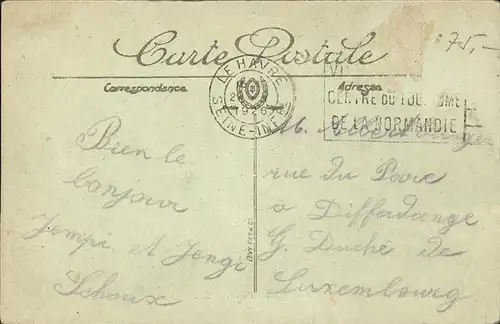 75,-
Carte Postale
Correspondance
Adresse
LE HAVRE
1926
SEINE-INFRE
CENTRE DU TOURISME
DE LA NORMANDIE
Bien le
bonjour
Jempi et Jengi
Schoux
M. Albert
rue du Parc
à Differdange
G. Duché de
Luxembourg